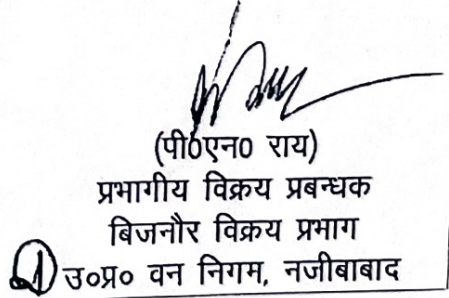 (पी0एन0 राय)
प्रभागीय विक्रय प्रबन्धक
बिजनौर विक्रय प्रभाग
उ०प्र० वन निगम, नजीबाबाद